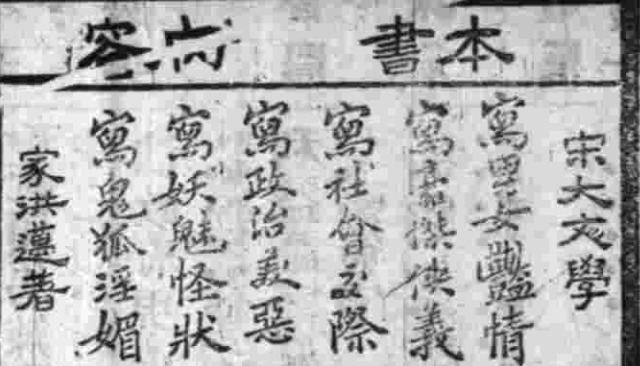 本書內容
宋大文學
寫男女豔情
寫豪傑俠義
寫社會交際
寫政治美惡
寫妖魅怪狀
寫鬼狐淫媚
家洪邁著